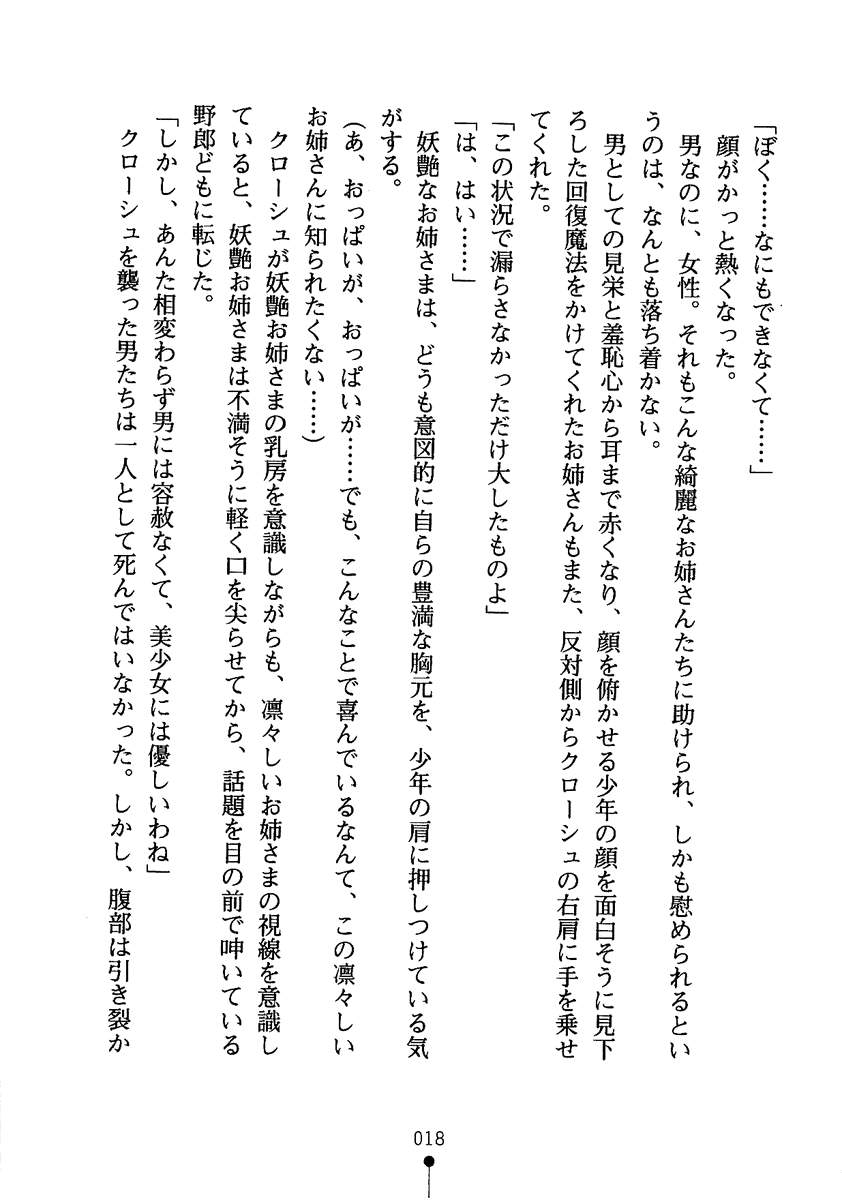 「ぼく……なにもできなくて……」
顔がかっと熱くなった。
男なのに、女性。それもこんな綺麗なお姉さんたちに助けられ、しかも慰められるとい
うのは、なんとも落ち着かない。
男としての見栄と羞恥心から耳まで赤くなり、顔を俯かせる少年の顔を面白そうに見下
ろした回復魔法をかけてくれたお姉さんもまた、反対側からクローシュの右肩に手を乗せ
てくれた。
「この状況で漏らさなかっただけ大したものよ」
「は、はい……」
妖艶なお姉さまは、どうも意図的に自らの豊満な胸元を、少年の肩に押しつけている気
がする。
（あ、おっぱいが、おっぱいが……でも、こんなことで喜んでいるなんて、この凛々しい
お姉さんに知られたくない……）
クローシュが妖艶お姉さまの乳房を意識しながらも、凛々しいお姉さまの視線を意識し
ていると、妖艶お姉さまは不満そうに軽く口を尖らせてから、話題を目の前で呻いている
野郎どもに転じた。
「しかし、あんた相変わらず男には容赦なくて、美少女には優しいわね」
クローシュを襲った男たちは一人として死んではいなかった。しかし、腹部は引き裂か
018